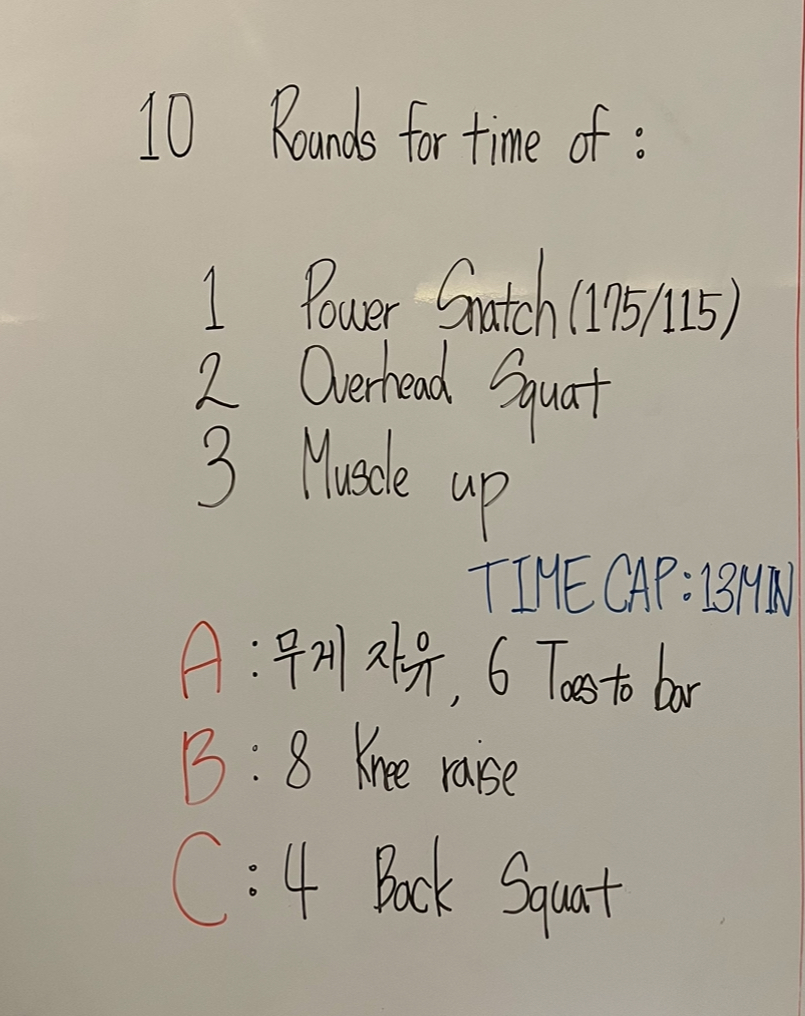 10 Rounds for time of :
1 Power Snatch (175/115)
2 Overhead Squat
3 Muscle up
TIME CAP : 13MIN
A : 무게 자유, 6 Toes to bar
B : 8 Knee raise
C : 4 Back Squat